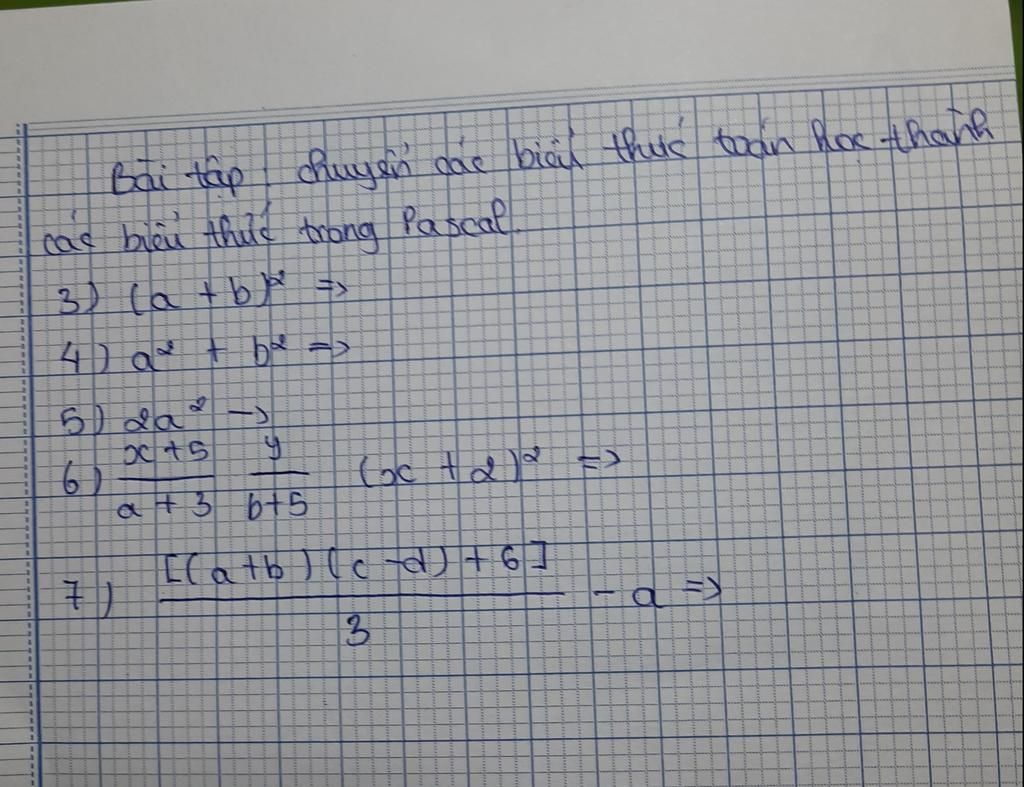 Bài tập: chuyển các biểu thức toán học thành
các biểu thức trong Pascal.
3) (a + b)² =>
4) a² + b² =>
5) 2a² ->
6) \frac{x+5}{a+3} \frac{y}{b+5} (x + 2)² =>
7) \frac{[(a+b)(c-d)+6]}{3} - a =>